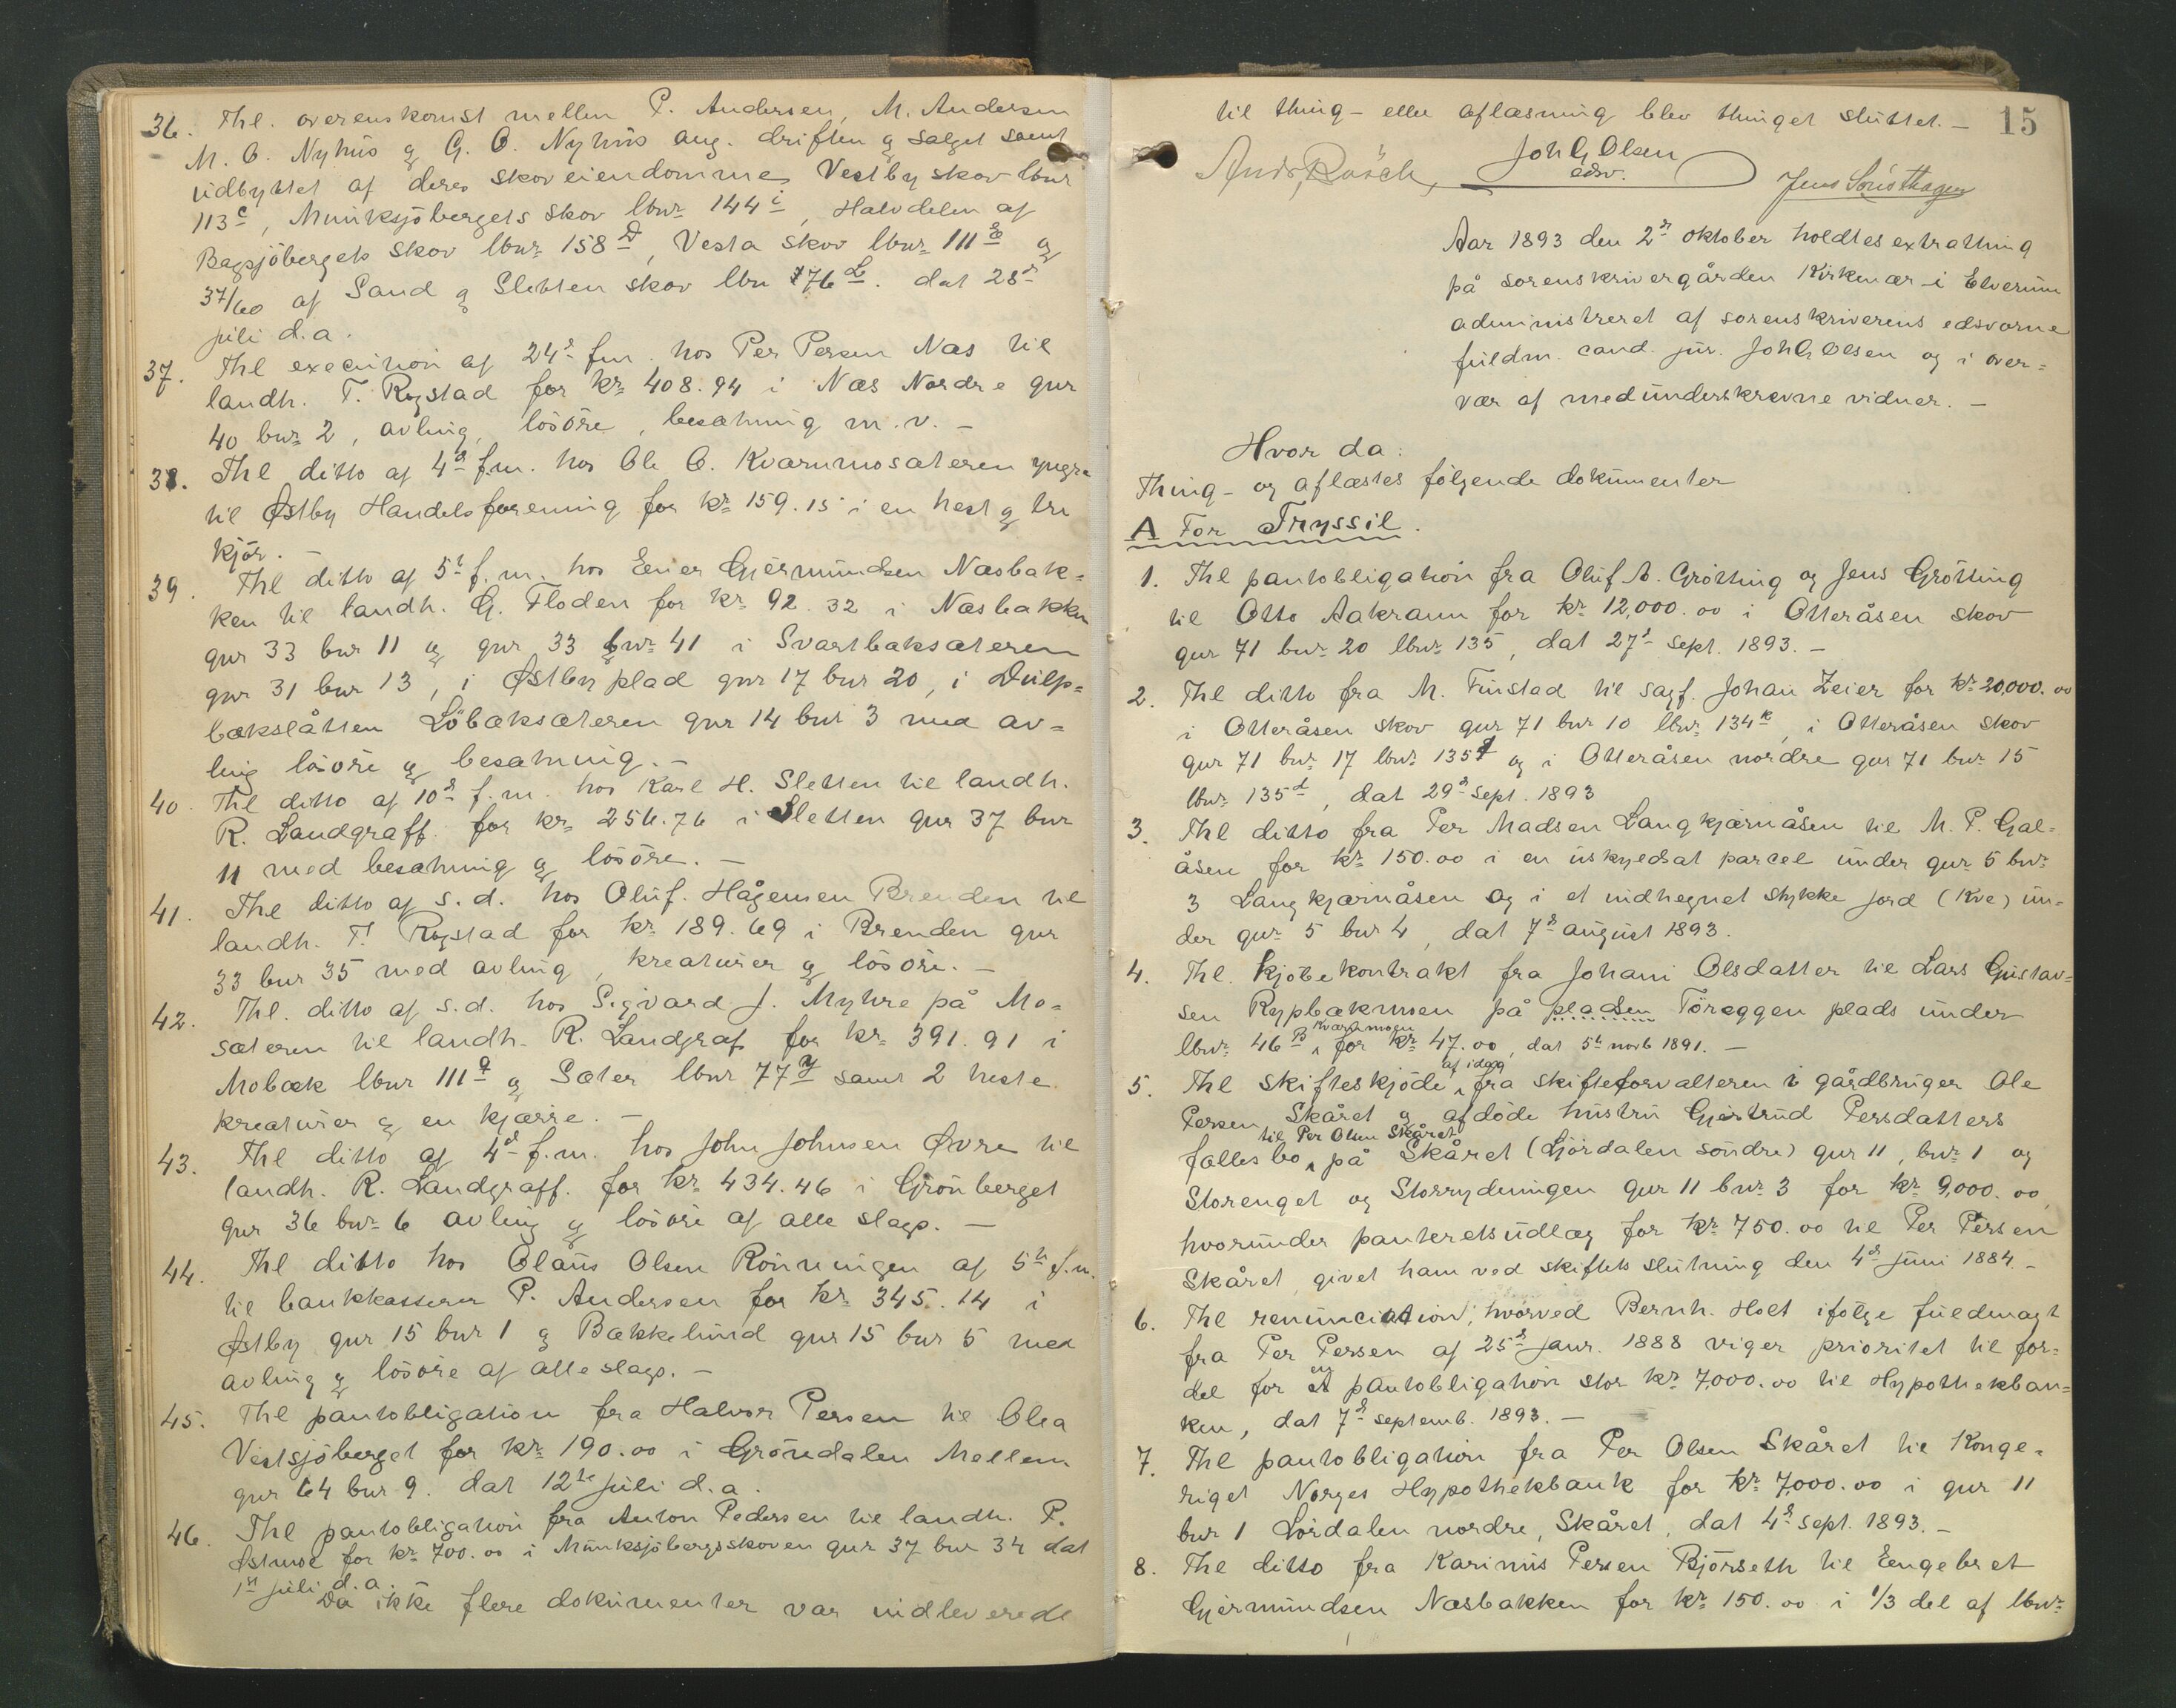 36. Thl. overenskomst mellem P. Andersen, M. Andersen
M. O. Nyhus & G. O. Nyhus ang. driften & salget samt
udbyttet af deres skoveiendomme Vestby skov lbnr
113c, Munksjöbergets skov lbnr 144i, Halvdelen af
Bagsjöbergets skov lbnr 158D, Vesta skov lbnr 111E &
37/60 af Sand & Sletten skov lbn 176L. dat 28de
juli d.a.
37. Thl execution af 24de f.m. hos Per Persen Næs til
landh. T. Rogstad for kr 408.94 i Næs Nordre gnr
40 bnr 2, avling, lösöre, besætning m.v. –
38. Thl ditto af 4de f.m. hos Ole O. Kværnmosæteren yngre
til Østby Handelsforening for kr 159.15 i en hest & tre
kjör. –
39. Thl ditto af 5te f.m. hos Eener Gjermundsen Næsbak=
ken til landh. G. Floden for kr 92.32 i Næsbakken
gnr 33 bnr 11 & gnr 33 bnr 41 i Svartbæksæteren
gnr 31 bnr 13, i Østby plad gnr 17 bnr 20, i Dulp=
bækslåtten Löbæksæteren gnr 14 bnr 3 med av=
ling lösöre & besætning. –
40. Thl ditto af 10de f.m. hos Karl H. Sletten til landh.
R. Landgraff for kr 256.76 i Sletten gnr 37 bnr
11 med besætning & lösöre. –
41. Thl ditto af s.d. hos Oluf Hågensen Brenden til
landh. T. Rogstad for kr 189.69 i Brenden gnr
33 bnr 35 med avling, kreaturer & lösöre. –
42. Thl. ditto af s.d. hos Sigvard J. Myhre på Mo=
sæteren til landh. R. Landgraf for kr 391.91 i
Mobæk lbnr 111q & Sæter lbnr 77y samt 2 heste
kreaturer & en kjærre. –
43. Thl ditto af 4de f.m. hos John Johnsen Øvre til
landh. R. Landgraff. for kr 434.46 i Grönberget
gnr 36 bnr 6 avling & lösöre af alle slags. –
44. Thl ditto hos Olaus Olsen Rönningen af 5te f.m.
til bankkasserer P. Andersen for kr 345.14 i
Østby gnr 15 bnr 1 & Bækkelund gnr 15 bnr 5 med
avling & lösöre af alle slags. –
45. Thl pantobligation fra Halvor Persen til Olea
Vestsjöberget for kr 190.00 i Gröndalen Mellem
gnr 64 bnr 9. dat 12te juli d.a.
46. Thl pantobligation fra Anton Pedersen til landh. P.
Østmoe for kr 700.00 i Munksjöbergsskoven gnr 37 bnr 34 dat
1st juli d.a.
Da ikke flere dokumenter var indleverede
15
til thing- eller aflæsning blev thinget sluttet. –
Joh G Olsen
edsv.
Jens Sörsthagen
Aar 1893 den 2de oktober holdtes extrathing
på sorenskrivergården Kirkenær i Elverum
administreret af sorenskriverens edsvorne
fuldm. cand. jur. Joh G Olsen og i over=
vær af medunderskrevne vidner. –
Hvor da:
Thing- og aflæstes følgende dokumenter
A For Tryssil.
1. Thl pantobligation fra Oluf A. Grötting og Jens Grötting
til Otto Aakrann for kr 12,000.00 i Otteråsen skov
gnr 71 bnr 20 lbnr 135, dat 27de sept. 1893. –
2. Thl ditto fra M. Finstad til sagf. Johan Zeier for kr 20,000.00
i Otteråsen skov gnr 71 bnr 10 lbnr 134k, i Otteråsen skov
gnr 71 bnr 17 lbnr 135f og i Otteråsen nordre gnr 71 bnr 15
lbnr 135d, dat 29de sept. 1893
3. Thl ditto fra Per Madsen Langkjærnåsen til M. P. Gal=
åsen for kr 150.00 i en uskyldsat parcel under gnr 5 bnr
3 Langkjærnåsen og i et indhegnet stykke jord (Kve) un=
der gnr 5 bnr 4, dat 7de august 1893.
4. Thl. kjöbekontrakt fra Johani Olsdatter til Lars Gustav=
sen Rypbækmoen på pladsen Töræggen plads under
lbnr 46B Kværnmoen for kr 47.00, dat 5te novb 1891. –
5. Thl skifteskjöde af idag fra skifteforvalteren i gårdbruger Ole
Persen Skåret & afdöde hustru Gjertrud Persdatters
fællesbo til Per Olsen Skåret på Skåret (Ljördalen söndre) gnr 11, bnr 1 og
Storenget og Storrydningen gnr 11 bnr 3 for kr 9,000.00,
hvorunder panteretsudlæg for kr 750.00 til Per Persen
Skåret, givet ham ved skiftets slutning den 4de juni 1884. –
6. Thl renunciation, hvorved Bernh. Holt ifölge fuldmagt
fra Per Persen af 25de janr. 1888 viger prioritet til for=
del for en pantobligation stor kr 7,000.00 til Hypothekban=
ken, dat 7de septemb. 1893. –
7. Thl pantobligation fra Per Olsen Skåret til Konge=
riget Norges Hypothekbank for kr 7,000.00 i gnr 11
bnr 1 Lördalen nordre, Skåret, dat 4de sept. 1893. –
8. Thl ditto fra Karinus Persen Björseth til Engebret
Gjermundsen Næsbakken for kr 150.00 i 1/3 del af lbnr